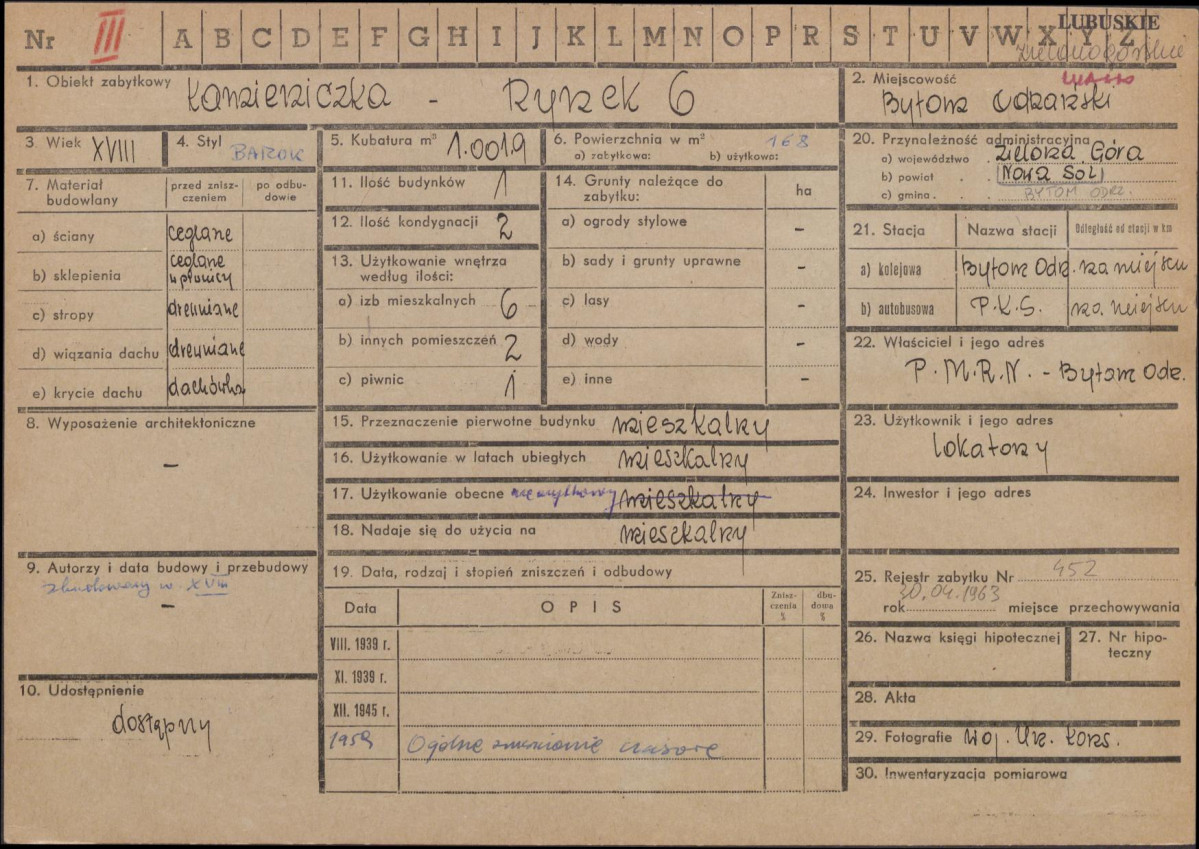 Nr III A B C D E F G H I J K L M N O P R S T U V W X Y Z
LUBUSKIE
zielonogórskie
1. Obiekt zabytkowy Kamieniczka - Rynek 6
2. Miejscowość
Bytom Odrzański
3. Wiek XVIII
4. Styl BAROK
5. Kubatura m³ 1.0019
6. Powierzchnia w m² 168
a) zabytkowa: b) użytkowa:
20. Przynależność administracyjna
a) województwo Zielona Góra
b) powiat Nowa Sól
c) gmina BYTOM ODRZ.
7. Materiał budowlany
przed zniszczeniem
po odbudowie
a) ściany ceglane
b) sklepienia ceglane w piwnicy
c) stropy drewniane
d) wiązania dachu drewniane
e) krycie dachu dachówka
11. Ilość budynków 1
12. Ilość kondygnacji 2
13. Użytkowanie wnętrza
według ilości:
a) izb mieszkalnych 6
b) innych pomieszczeń 2
c) piwnic 1
14. Grunty należące do
zabytku: ha
a) ogrody stylowe -
b) sady i grunty uprawne -
c) lasy -
d) wody -
e) inne -
21. Stacja Nazwa stacji Odległość od stacji w km
a) kolejowa Bytom Odrz. na miejscu
b) autobusowa P.K.S. na miejscu
22. Właściciel i jego adres
P.M.R.N. - Bytom Odrz.
8. Wyposażenie architektoniczne
-
15. Przeznaczenie pierwotne budynku mieszkalny
16. Użytkowanie w latach ubiegłych mieszkalny
17. Użytkowanie obecne nieużytkowany mieszkalny
18. Nadaje się do użycia na mieszkalny
23. Użytkownik i jego adres
lokatorzy
24. Inwestor i jego adres
9. Autorzy i data budowy i przebudowy
zbudowany w XVIII
-
10. Udostępnienie
dostępny
19. Data, rodzaj i stopień zniszczeń i odbudowy
Data OPIS Zniszczenia % dbudowa %
VIII. 1939 r.
XI. 1939 r.
XII. 1945 r.
1959 Ogólne
25. Rejestr zabytku Nr 452
30.04.1963
rok miejsce przechowywania
26. Nazwa księgi hipotecznej
27. Nr hipoteczny
28. Akta
29. Fotografie Woj. Urz. Kons.
30. Inwentaryzacja pomiarowa